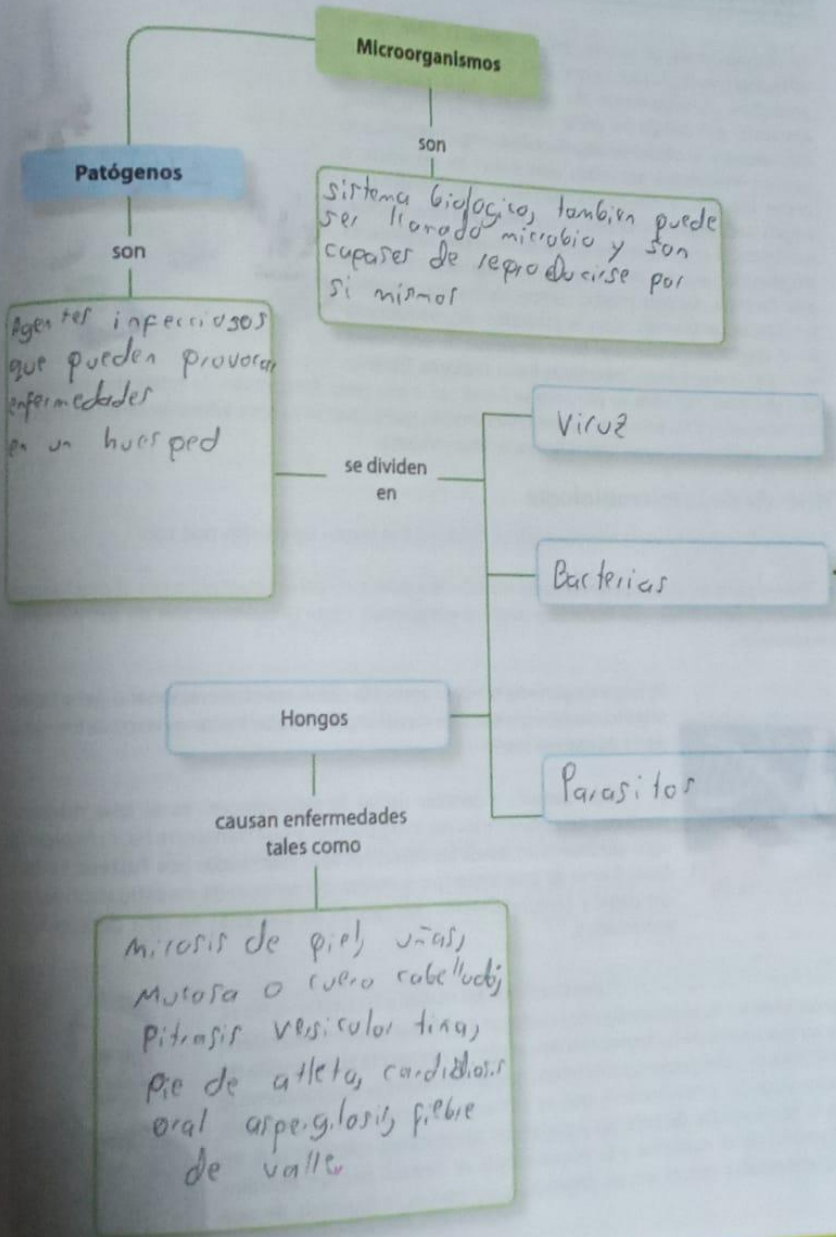 Microorganismos
son
sistema biologico, tambien puede
ser llamado microbio y son
capases de reproducirse por
si mismos
Patógenos
son
Agentes infecciosos
que pueden provocar
enfermedades
en un huesped
se dividen
en
Viruz
Bacterias
Parasitos
Hongos
causan enfermedades
tales como
Micosis de piel, uñas,
Mucosa o cuero cabelludo;
Pitiasis versicolor tina,
pie de atleta, candidiosis
oral aspergilosis, fiebre
de valle.